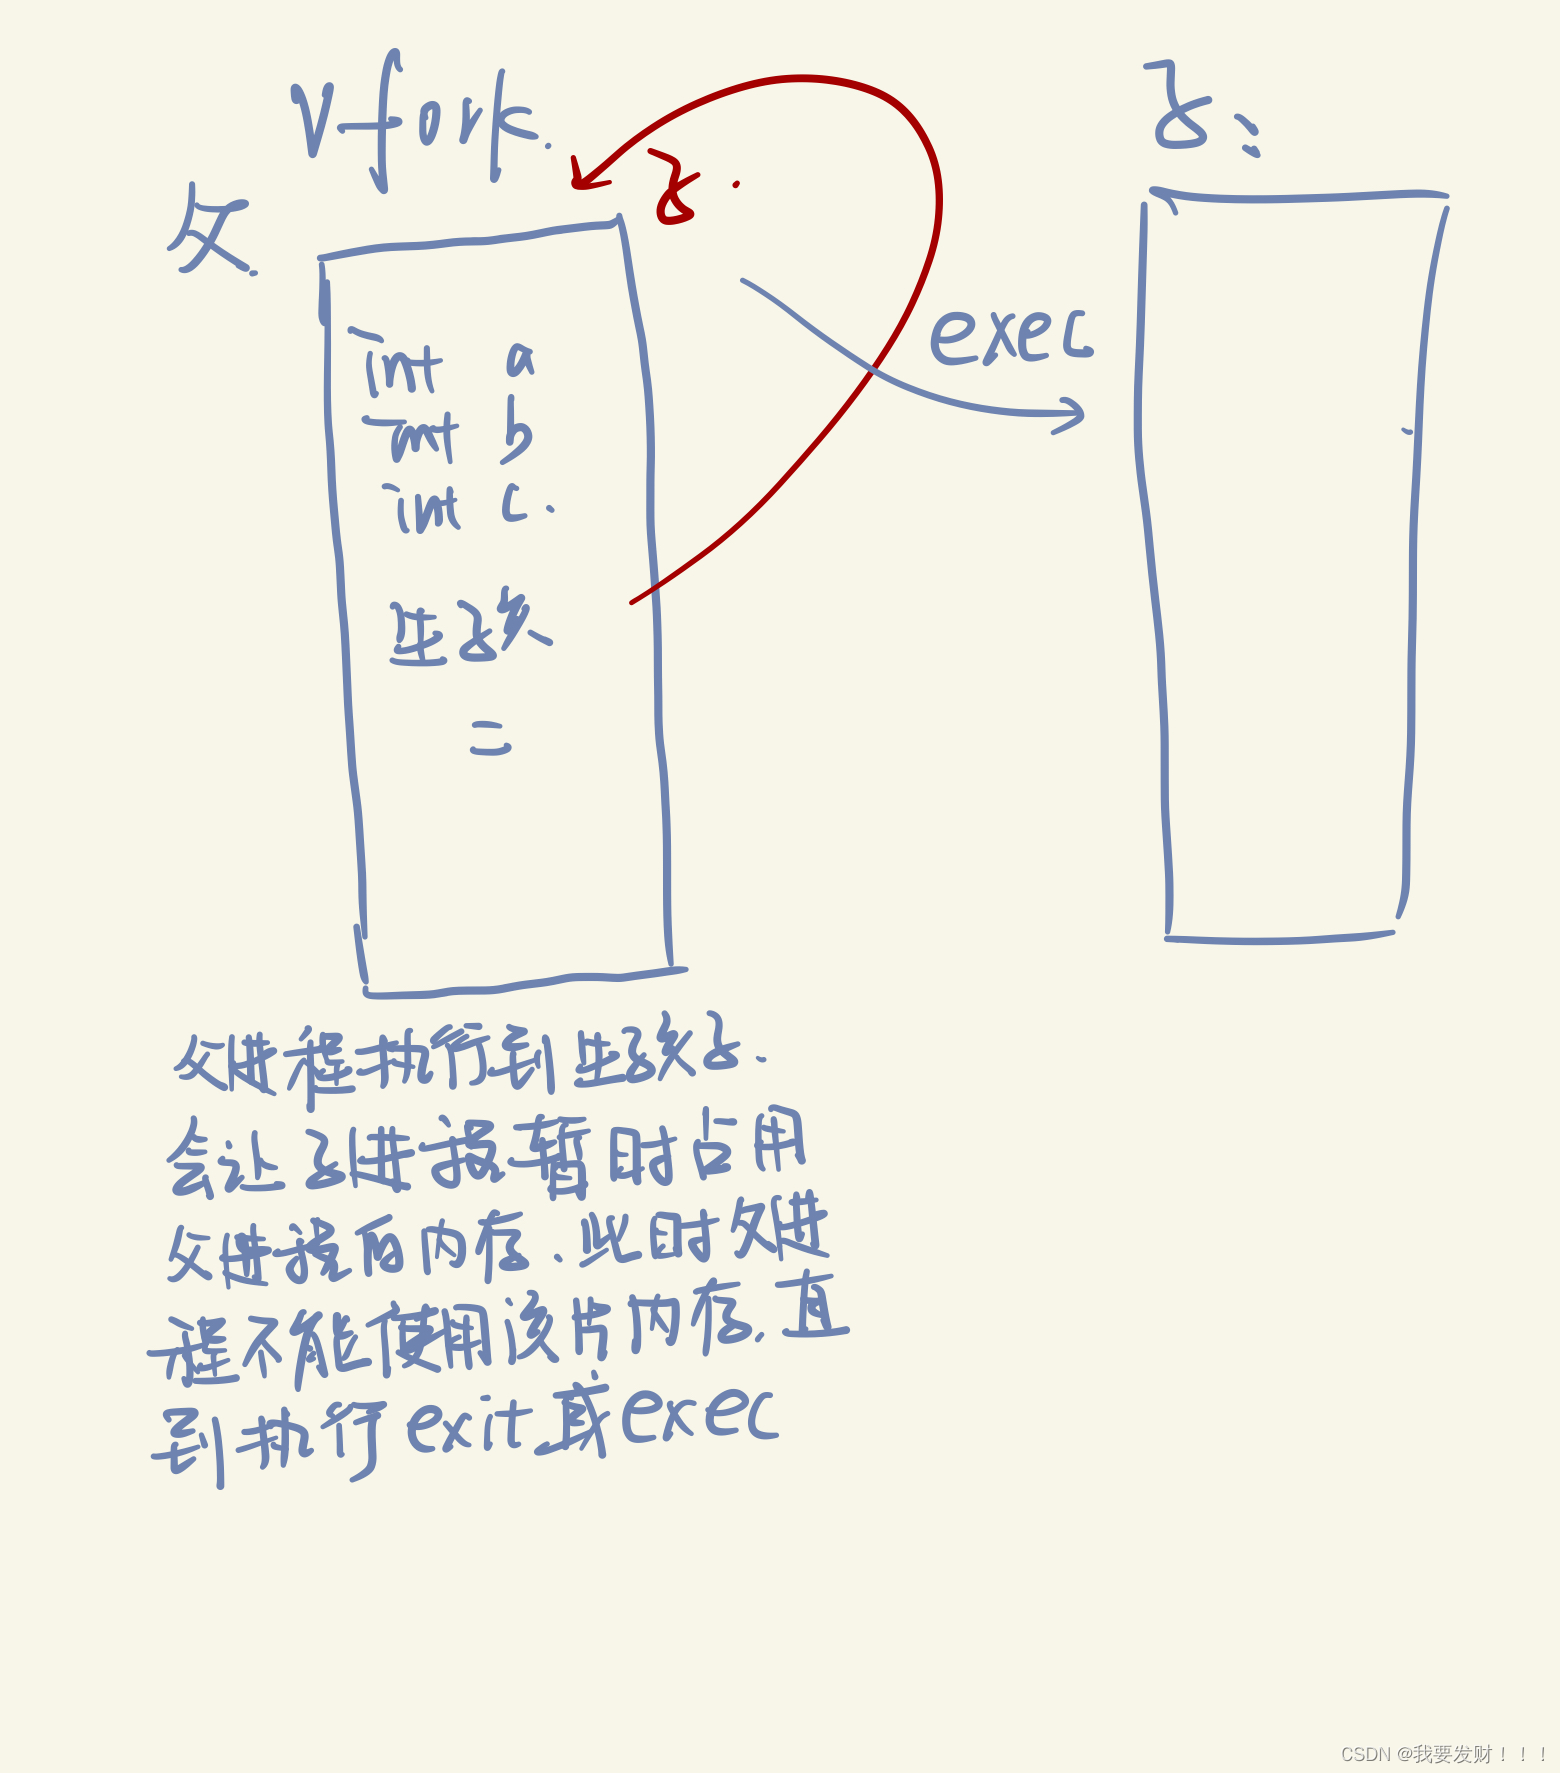 vfork.
子:
父.
子.
int a
exec
int b
int c.
生孩
=
父进程执行到生孩子.
会让子进程暂时占用
父进程的内存.此时父进
程不能使用该片内存,直
到执行exit或exec
CSDN @我要发财！！！